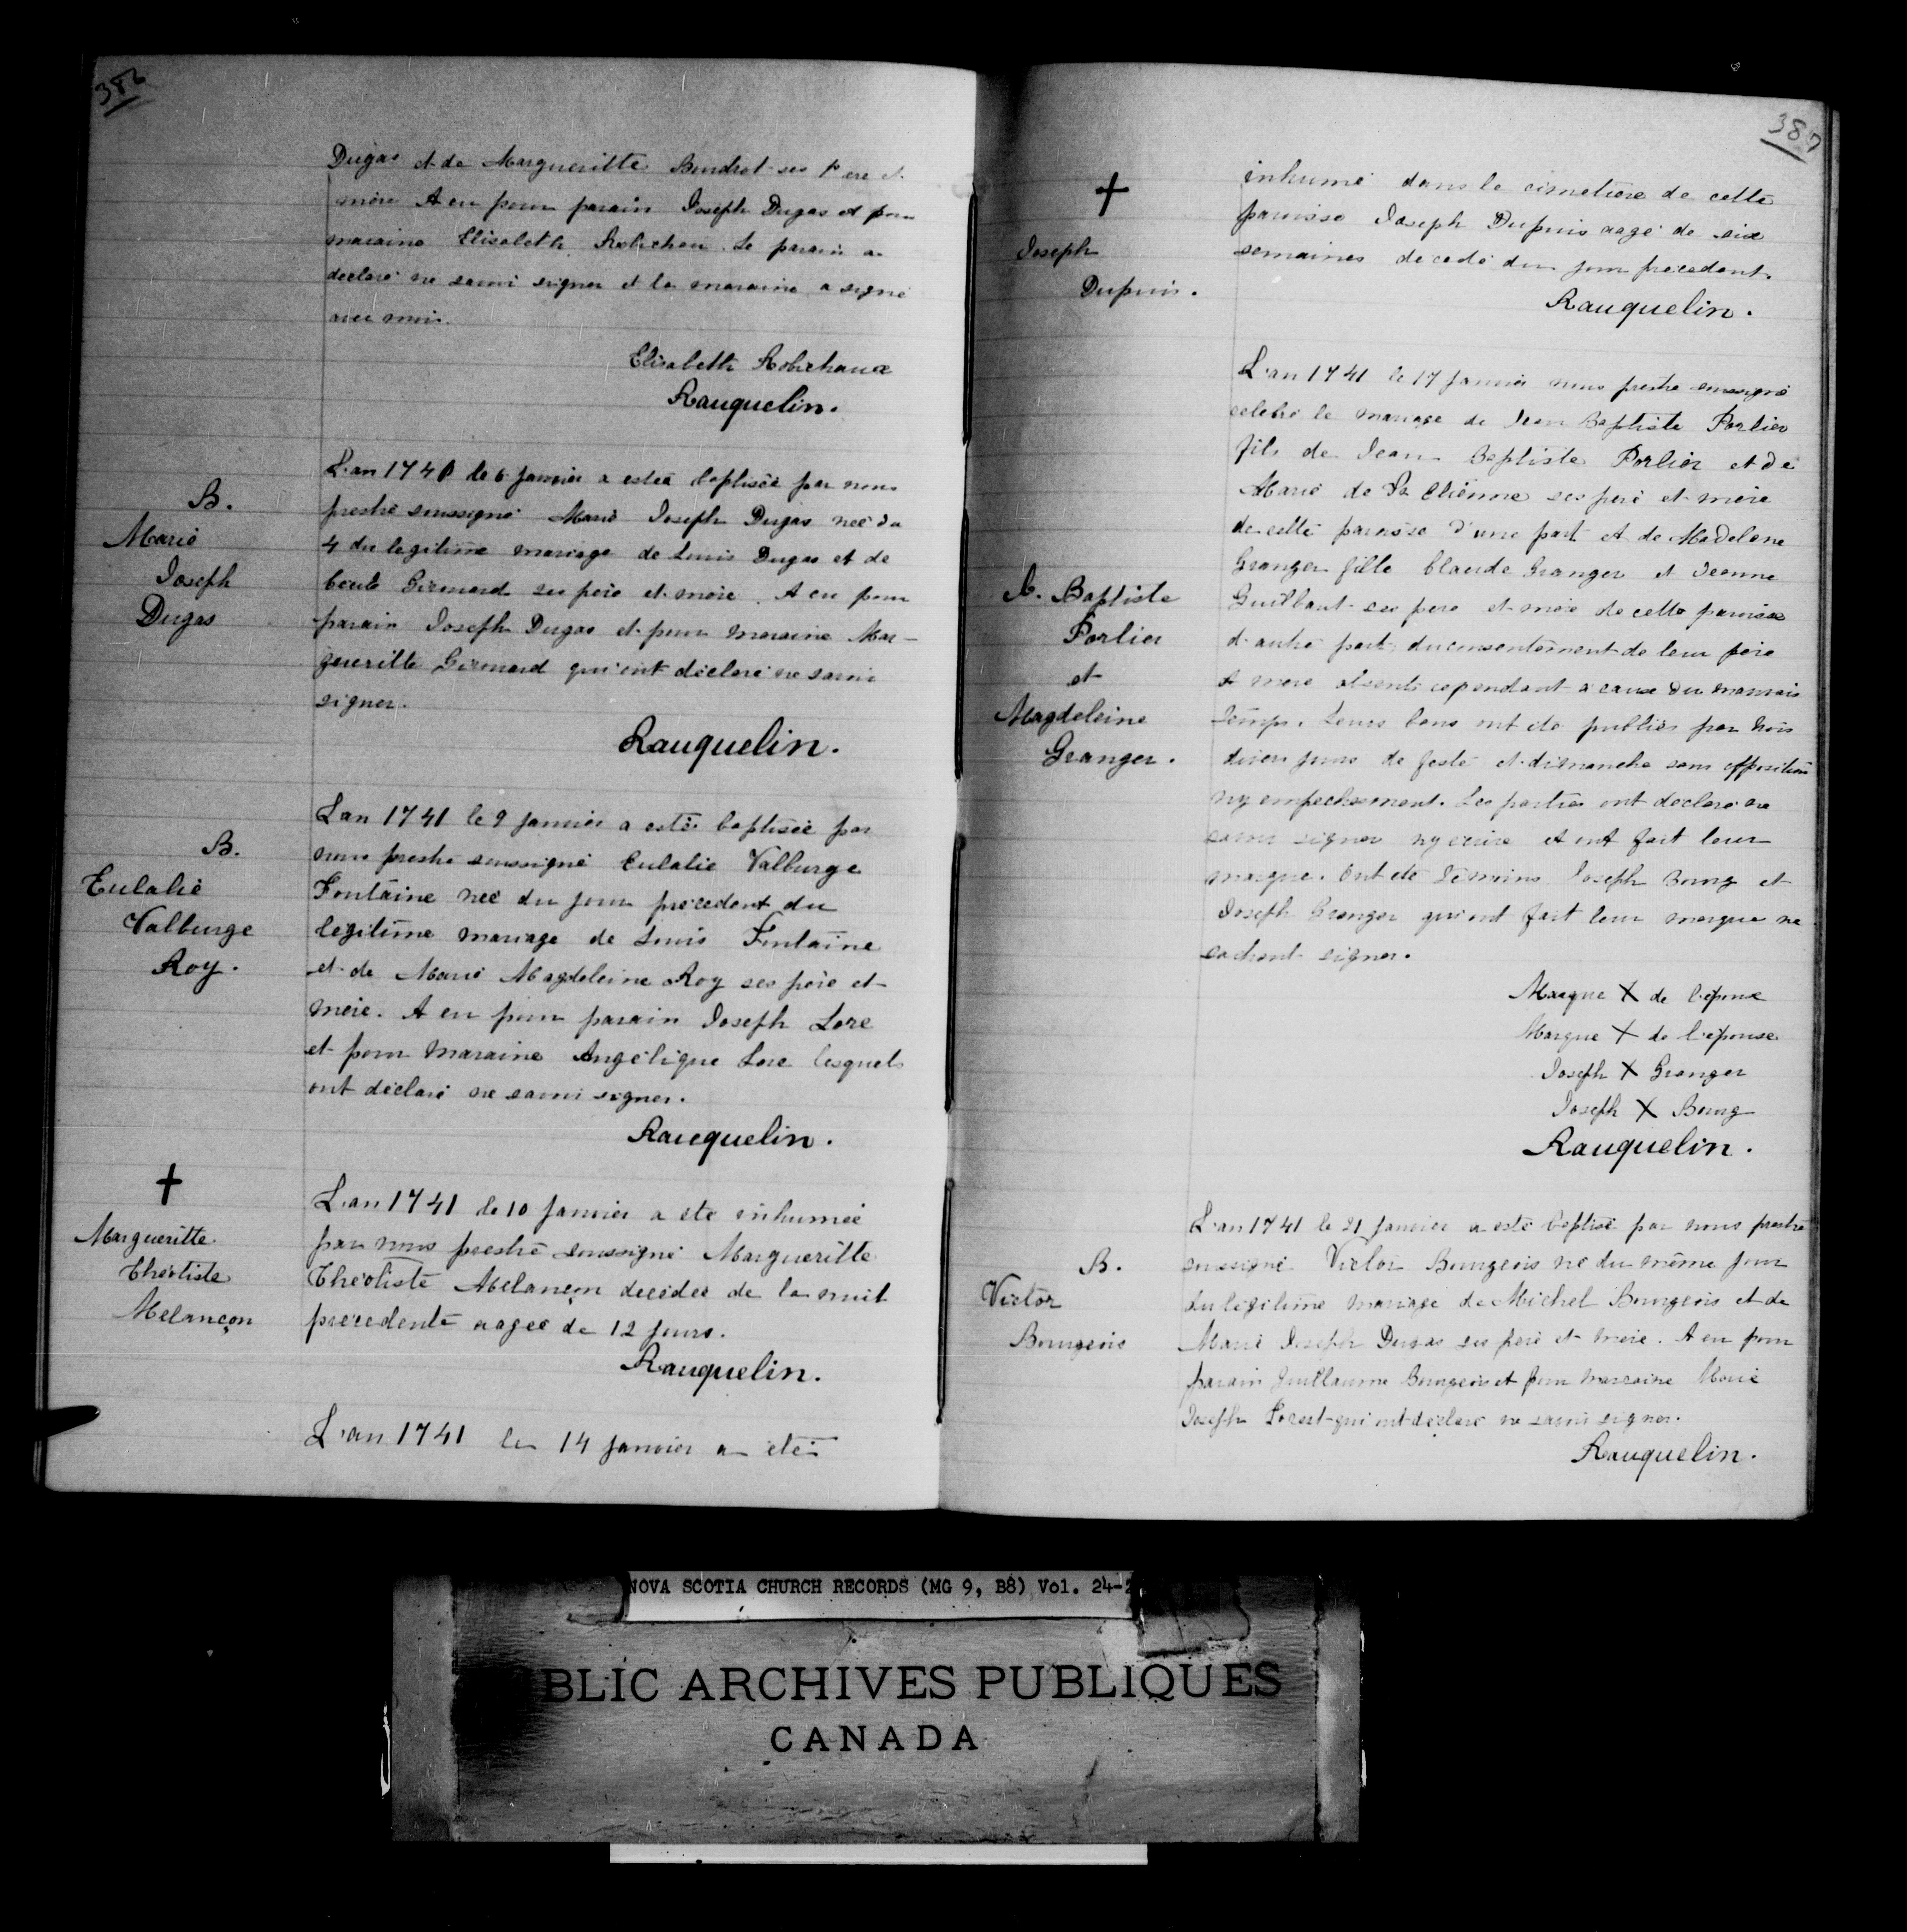 386
Dugas et de Margueritte Bendrot ses Père et
mère A eu pour parain Joseph Dugas et pour
maraine Elisabeth Robichau. Le parain a
declaré ne savoir signer et la maraine a signé
avec moi.
Elisabeth Robichaux
Rauquelin.
B.
Marie
Joseph
Dugas
L'an 1741 le 6 janvier a esteé baptiseé par nous
prestre soussigné Marie Joseph Dugas neé du
4 du legitime mariage de Louis Dugas et de
Cecile Girouard ses père et mère. A eu pour
parain Joseph Dugas et pour maraine Mar-
gueritte Girouard qui ont déclaré ne savoir
signer.
Rauquelin.
B.
Eulalie
Valburge
Roy.
L'an 1741 le 9 janvier a esté baptiseé par
nous prestre soussigné Eulalie Valburge
Fontaine neé du jour précedent du
legitime mariage de Louis Fontaine
et de Marie Magdeleine Roy ses père et
mère. A eu pour parain Joseph Lore
et pour maraine Angélique Lore lesquels
ont déclaré ne savoir signer.
Rauquelin.
†
Margueritte
Théotiste
Melançon
L'an 1741 le 10 janvier a eté inhumeé
par nous prestre soussigné Margueritte
Théotiste Melançon decédeé de la nuit
precedente aageé de 12 jours.
Rauquelin.
L'an 1741 le 14 janvier a été
387
†
Joseph
Dupuis.
inhumé dans le cimetiere de cette
paroisse Joseph Dupuis aagé de six
semaines decedé du jour precedent.
Rauquelin.
J. Baptiste
Forlier
et
Magdeleine
Granger.
L'an 1741 le 17 janvier nous prestre soussigné
celebré le mariage de Jean Baptiste Forlier
fils de Jean Baptiste Forlier et de
Marie de St Etienne ses père et mère
de cette paroisse d'une part et de Madelene
Granger fille Claude Granger et Jeanne
Guilbaut ses pere et mère de cette paroisse
d'autre part du consentement de leur père
et mere absents cependant a cause du mauvais
temps. Leurs bans ont été publiés par trois
divers jours de feste et dimanche sans opposition
ny empechement. Les parties ont declaré ne
savoir signer ny ecrire et ont fait leur
marque. Ont été témoins Joseph Bourg et
Joseph Granger qui ont fait leur marque ne
sachant signer.
Marque X de l'époux
Marque X de l'épouse
Joseph X Granger
Joseph X Bourg
Rauquelin.
B.
Victor
Bourgeois
L'an 1741 le 21 janvier a esté baptisé par nous prestre
soussigné Victor Bourgeois né du même jour
du légitime mariage de Michel Bourgeois et de
Marie Joseph Dugas ses père et mère. A eu pour
parain Guillaume Bourgeois et pour marraine Marie
Joseph Forest qui ont déclaré ne savoir signer.
Rauquelin.
NOVA SCOTIA CHURCH RECORDS (MG 9, B8) Vol. 24-2
BLIC ARCHIVES PUBLIQUES
CANADA